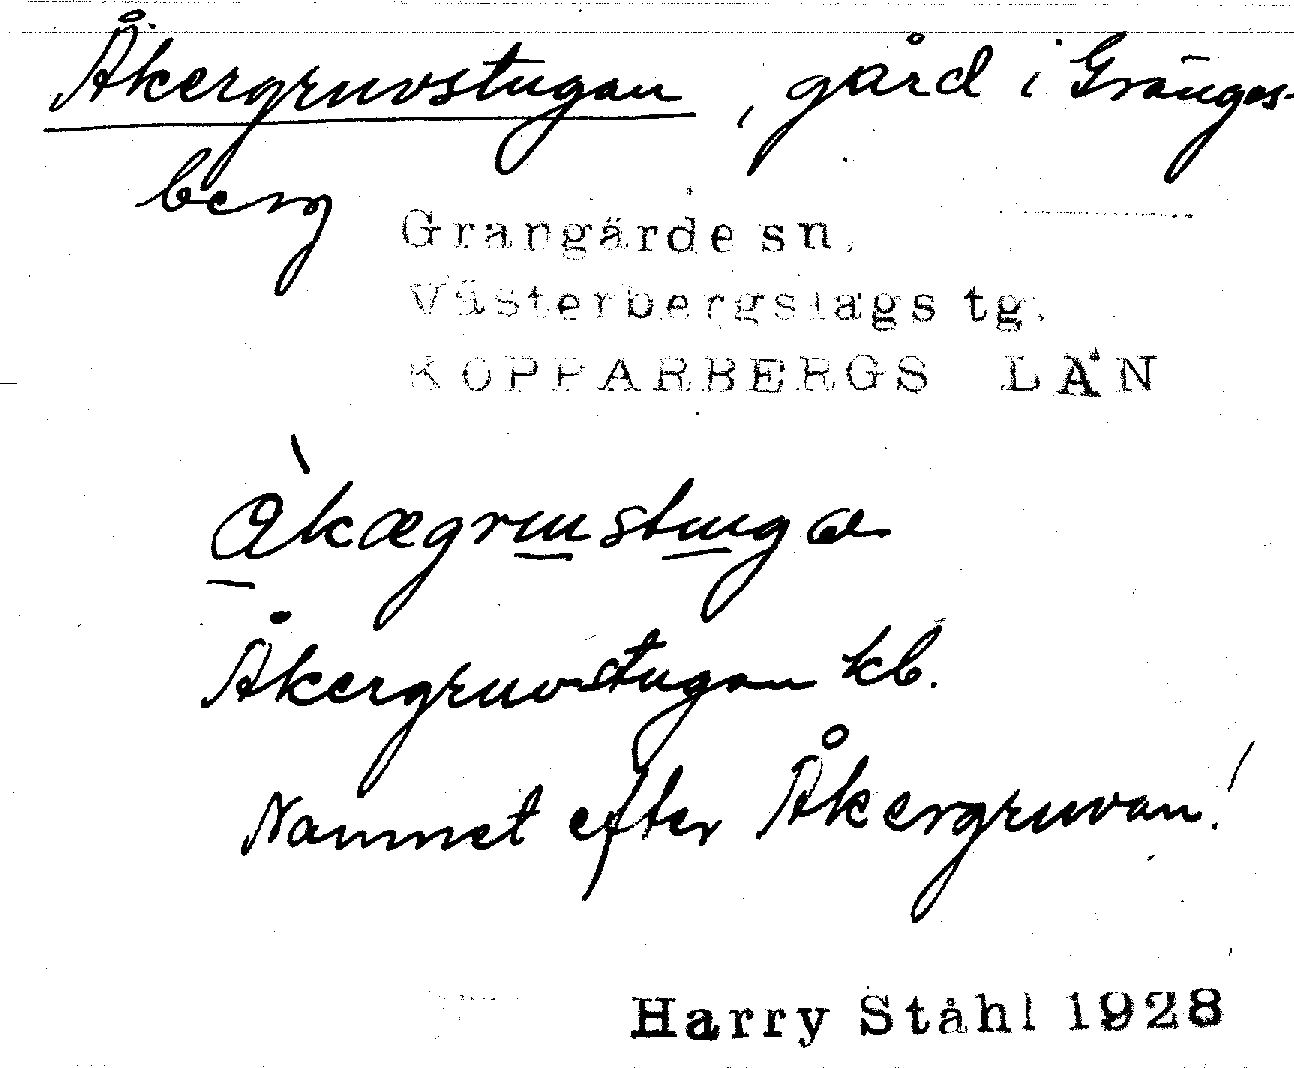 Åkergruvstugan, gård i Gränges-
berg
Grangärde sn.
Västerbergslags tg.
KOPPARBERGS LÄN
åkægrustugɑ
Åkergruvstugan kb.
Namnet efter Åkergruvan!
Harry Ståhl 1928